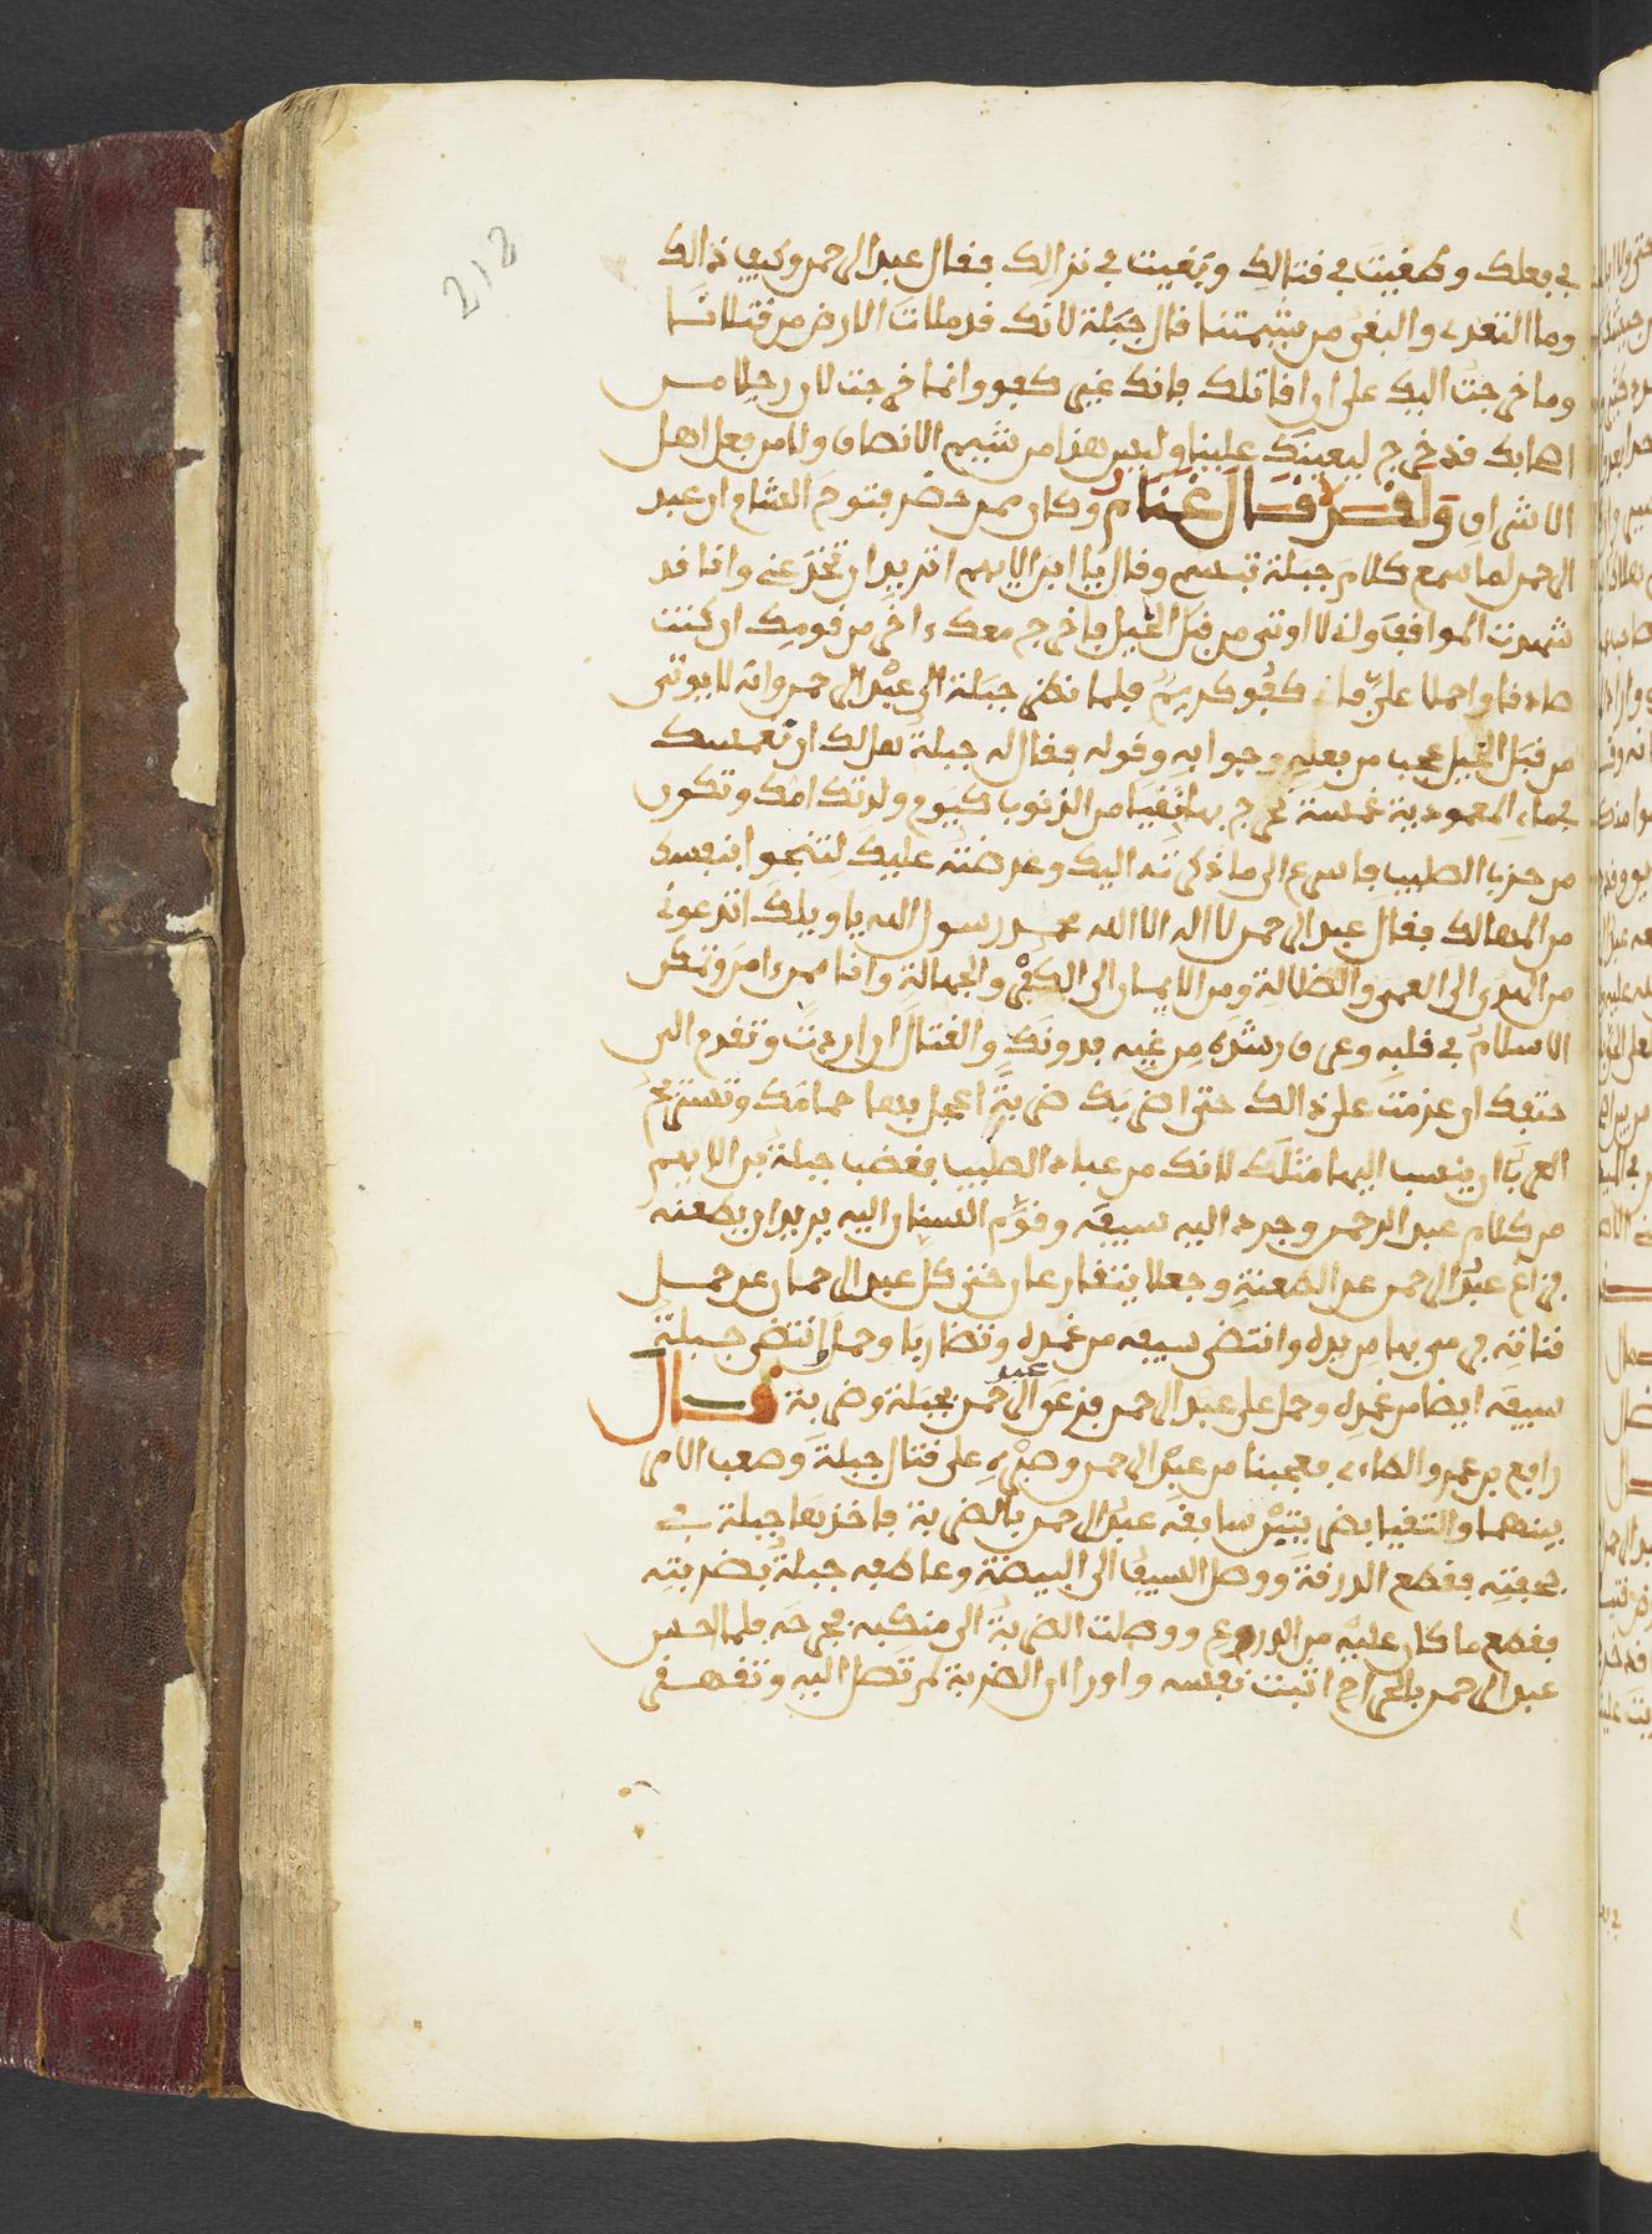 212
في بعلك وطغيت في قتالك وبغيت في نزالك فقال عبد الرحمن وكيف ذالك
وما التعدي والبغي من شيمتنا قال جبلة لانك قد ملات الارض من قتلانا
وما خرجت اليك على ان اقاتلك فانك غير كفو وانما خرجت لان رجلا من
اصابك قد خرج ليعينك علينا وليس هذا من شيم الانصاف ولا من فعل اهل
الاشراف ولقد قال غنام وكان ممن حضر فتوح الشام ان عبد
الرحمن لما سمع كلام جبلة تبسم وقال يا ابن الايهم اتريد ان تخدعني وانا قد
شهدت المواقف ولا اوتى من قبل الخيل فاخرج معك ءاخر من قومك ان كنت
صادقا واحملا علي فاني كفو كريم فلما نظر جبلة الى عبد الرحمن وانه لا يوتى
من قبل الخيل عجب من فعله وجوابه وقوله فقال له جبلة هل لك ان نغمسك
في ماء المعمودية غمسة تخرج بها نقيا من الذنوب كيوم ولدتك امك وتكون
من حزب الصليب فاسرع الى ما ذكرته اليك وعرضته عليك لتنجوا بنفسك
من المهالك فقال عبد الرحمن لا اله الا الله محمد رسول الله يا ويلك اتدعوني
من الهدى الى العمى والضلالة ومن الايمان الى الكفر والجهالة وانا ممن ءامن وتمكن
الاسلام في قلبه وعرف رشده من غيه فدونك والقتال ان اردت وتقدم الى
حتفك ان عزمت على ذالك حتى اضربك ضربة اعجل بها حمامك وتستريح
العرب ان ينسب اليها مثلك لانك من عباد الصليب فغضب جبلة بن الايهم
من كلام عبد الرحمن وجرد اليه سيفه وقوم السنان اليه يريد ان يطعنه
فزاغ عبد الرحمن عن الطعنة وجعلا يتقارعان حتى كل عبد الرحمان عن حمل
قناته فرمى بها من يده وانتضى سيفه من غمده وتضاربا وحمل وانتضى جبلة
سيفه ايضا من غمده وحمل على عبد الرحمن فزعق عبد الرحمن بجبلة وضربه قال
رافع بن عمرو الطاءي فعجبنا من عبد الرحمن وصبره على قتال جبلة وصعب الامر
بينهما والتقيا بضربتين سابقه عبد الرحمن بالضربة فاخذها جبلة في
حجفته فقطع الدرقة ووصل السيف الى البيضة وعاطفه جبلة بضربته
فقطع ما كان عليه من الدروع ووصلت الضربة الى منكبه فجرحه فلما احس
عبد الرحمن بالجراح اثبت نفسه واورا ان الضربة لم تصل اليه وتقهقر